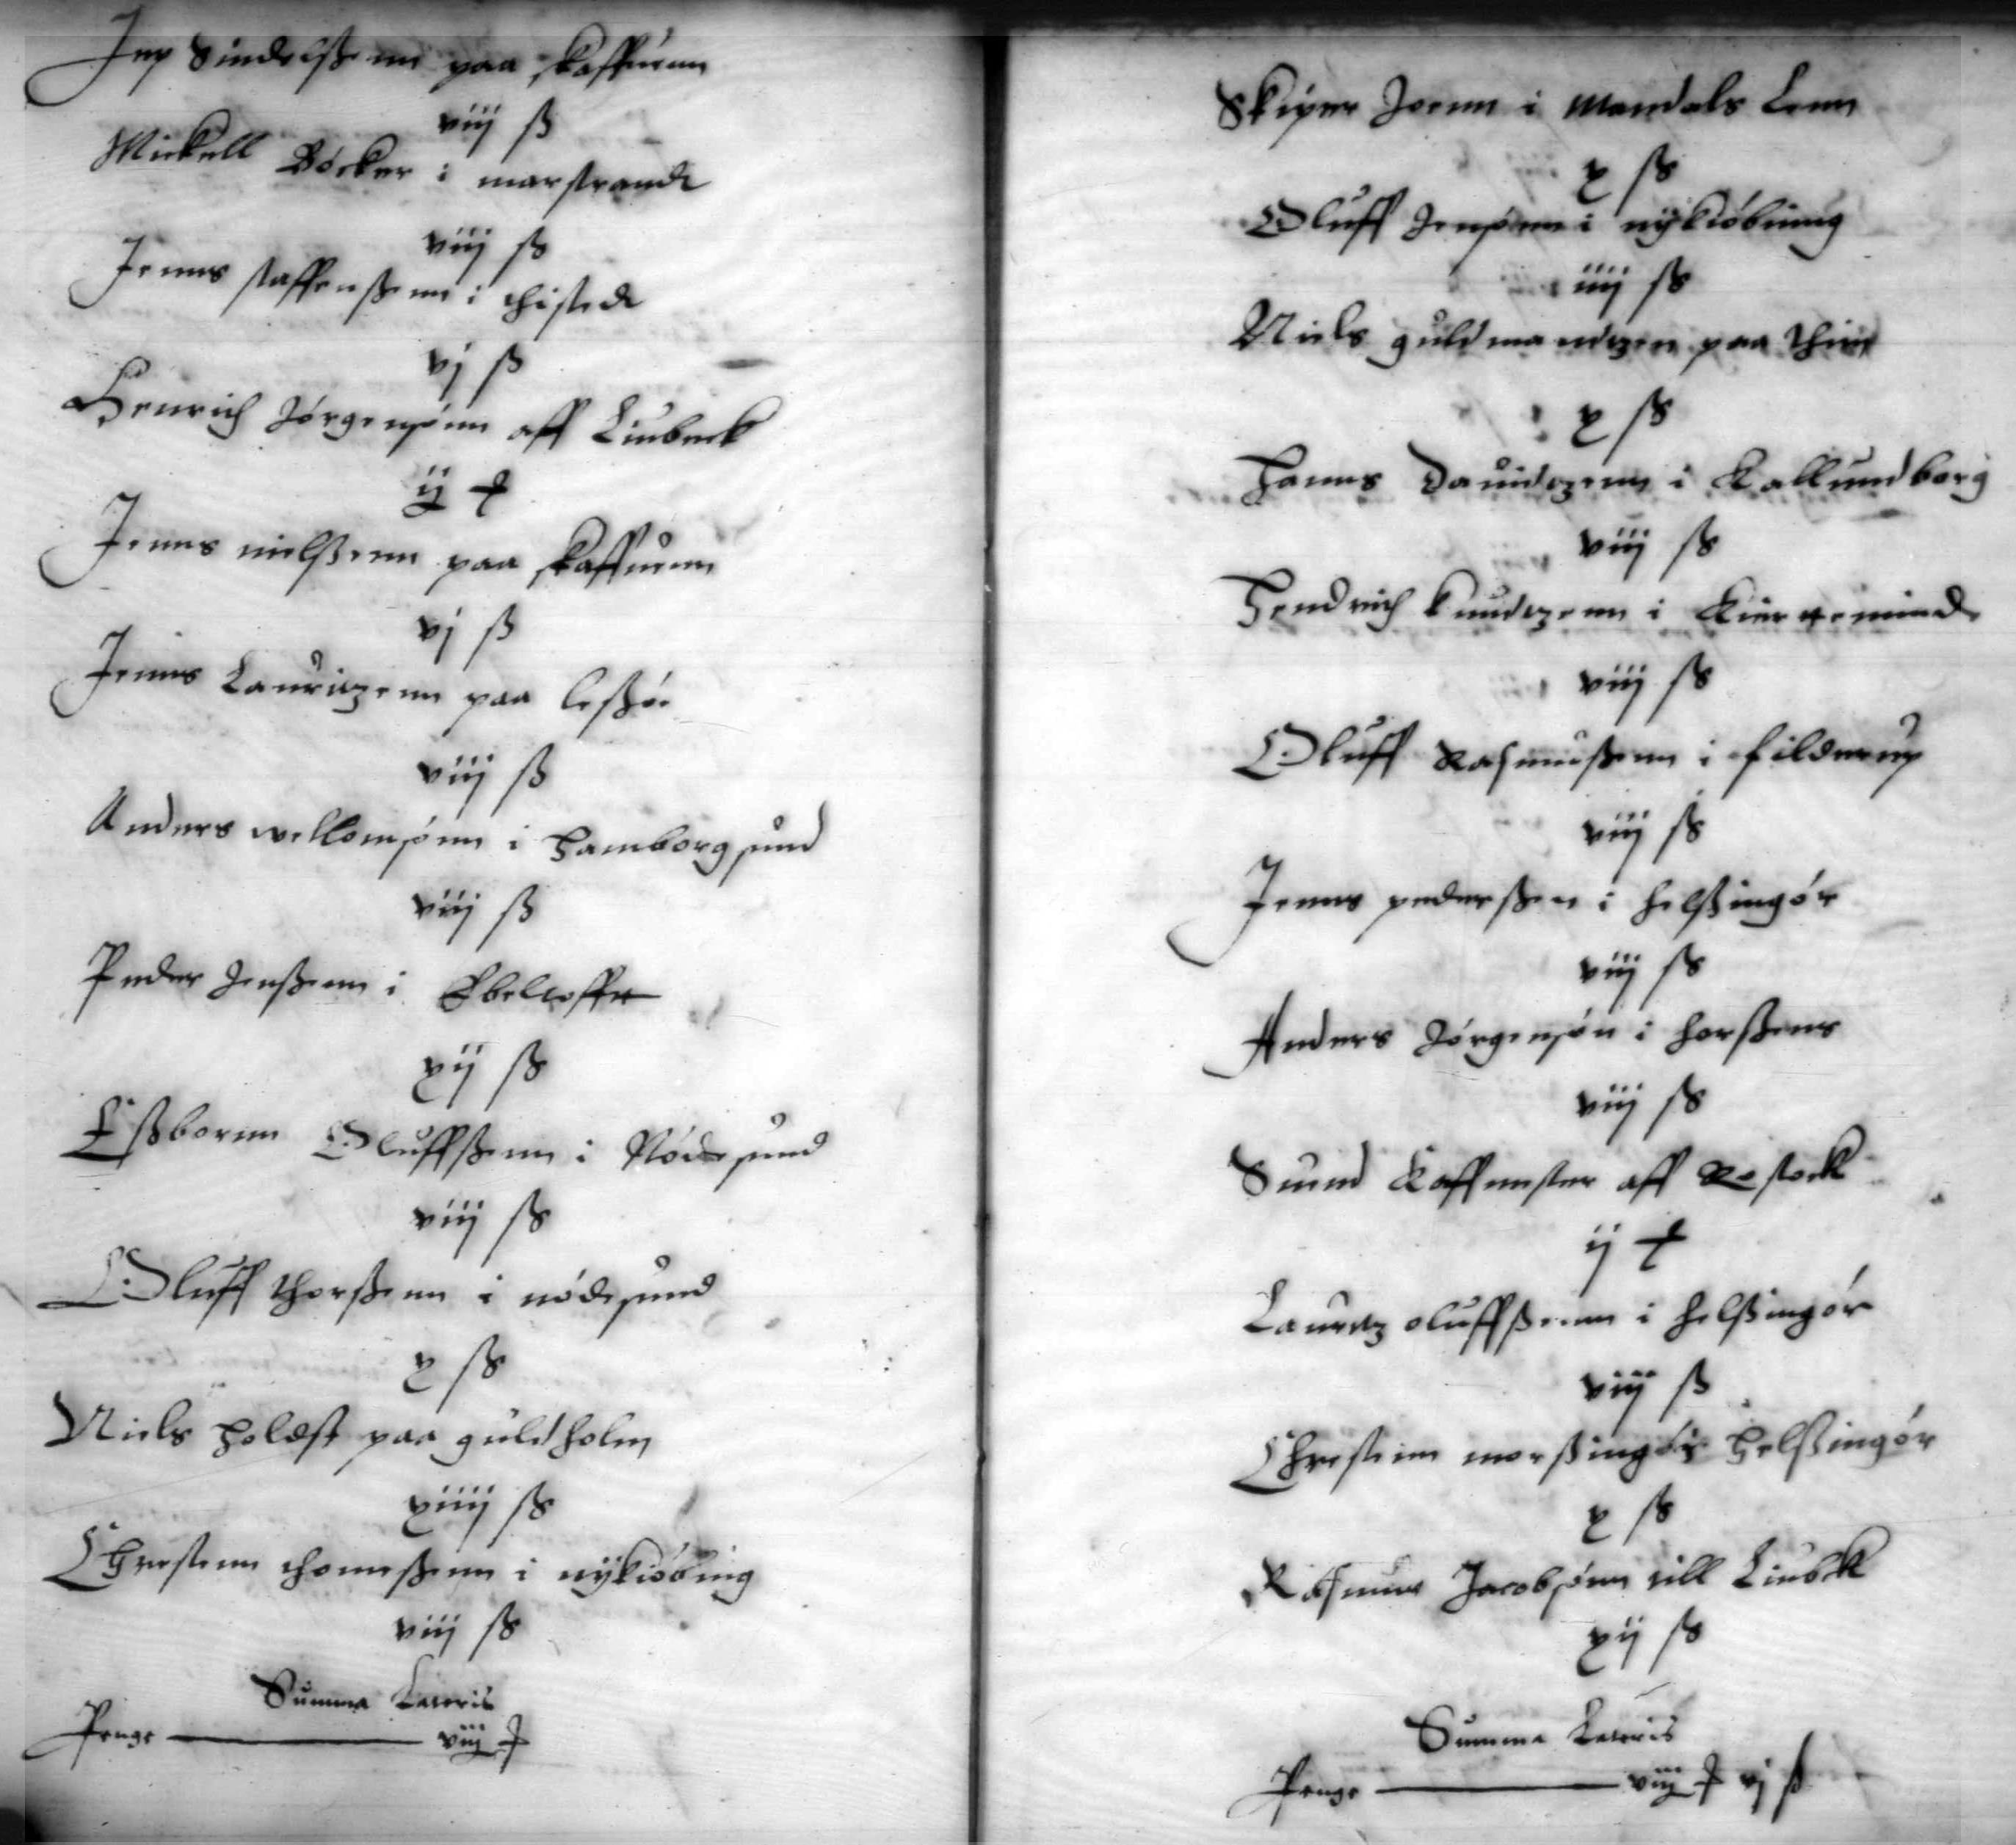 Jep Sindelßenn paa skaffuenn
viij ß
Mickell Böcker i marstrande
viij ß
Jenns staffenßenn i thistede
vj ß
Henrich Jörgensönn aff Liubeck
ij
Jenns nielßenn paa skaffuenn
vj ß
Jenns Lauritzenn paa leßöe
viij ß
Anders wellomsönn i Hamborgsund
viij ß
Peder Jenßenn i Ebeltofftt
xij ß
Eßbornn Oluffßenn i Nödesund
viij ß
Oluff thorßenn i nödesund
x ß
Niels Holdst paa guldholm
xiiij ß
Chrestenn thomeßenn i nykiöbing
viij ß
Summa Lateris
Penge viij
Skiper Joenn i Mandals Lenn
x ß
Oluff Jensönn i nykiöbinng
iiij ß
Niels guldmandtzen paa
x ß
Hanns Dauidtzenn i Kallundborg
viij ß
Hendrich knudtzenn i Kiertteminde
viij ß
Oluff Rasmußenn i filderup
viij ß
Jenns pederßen i helßingör
viij ß
Anders Jörgensön i horßens
viij ß
Suend aff Rostock
ij
Lauritz oluffßenn i helßingör
viij ß
Chrestenn morßingör Helßingör
x ß
Rasmus Jacobsönn till Liubck
xij ß
Summa Lateris
Penge viij vj ß